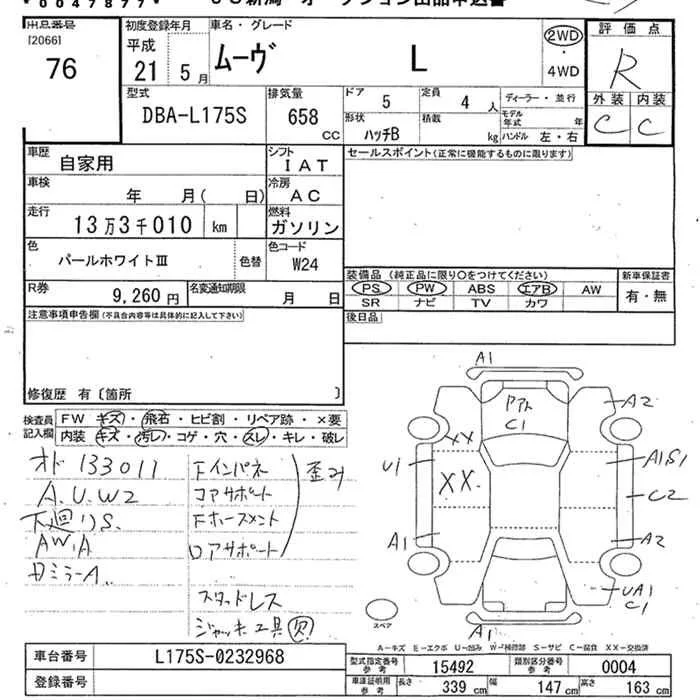 *0047877*
出品番号
[2066]
76
初度登録年月
平成
21 5月
車名・グレード
ムーヴ L
2WD
・
4WD
評価点
R
外装 内装
C C
型式
DBA-L175S
排気量
658
CC
ドア 5
定員 4 人
ディーラー・並行
形状
ハッチB
積載
kg
モデル年式 年
ハンドル 左・右
車歴
自家用
シフト
IAT
セールスポイント(正常に機能するものに限ります)
車検
年 月( 日)
冷房
AC
走行
13万3千010 km
燃料
ガソリン
色
パールホワイトⅢ
色替
色コード
W24
装備品 (純正品に限り○をつけてください)
PS PW ABS エアB AW
SR ナビ TV カワ
新車保証書
有・無
R券
9,260 円
名変通知期限
月 日
後日品
注意事項申告欄(不具合内容等は具体的に記入して下さい)
修復歴 有〔箇所 〕
検査員
記入欄
FW キズ・飛石・ヒビ割・リペア跡・×要
内装 キズ・汚レ・コゲ・穴・スレ・キレ・破レ
オド 133011
A.U.W2
下廻りS.
AW.A
Fインパネ
コアサポート
Fホースメント
ロアサポート
歪み
スタッドレス
ジャッキ工具 欠
A1
アト
C1
A2
XX
U1
XX.
A1S1
C2
A1
A2
UA1
C1
A1
スペア
A-キズ E-エクボ U-凹み W-補修跡 S-サビ C-腐食 XX-交換済
車台番号
L175S-0232968
登録番号
型式指定番号
参考
15492
類別区分番号
参考
0004
車庫証明用
参考
長さ 339 cm
幅 147 cm
高さ 163 cm